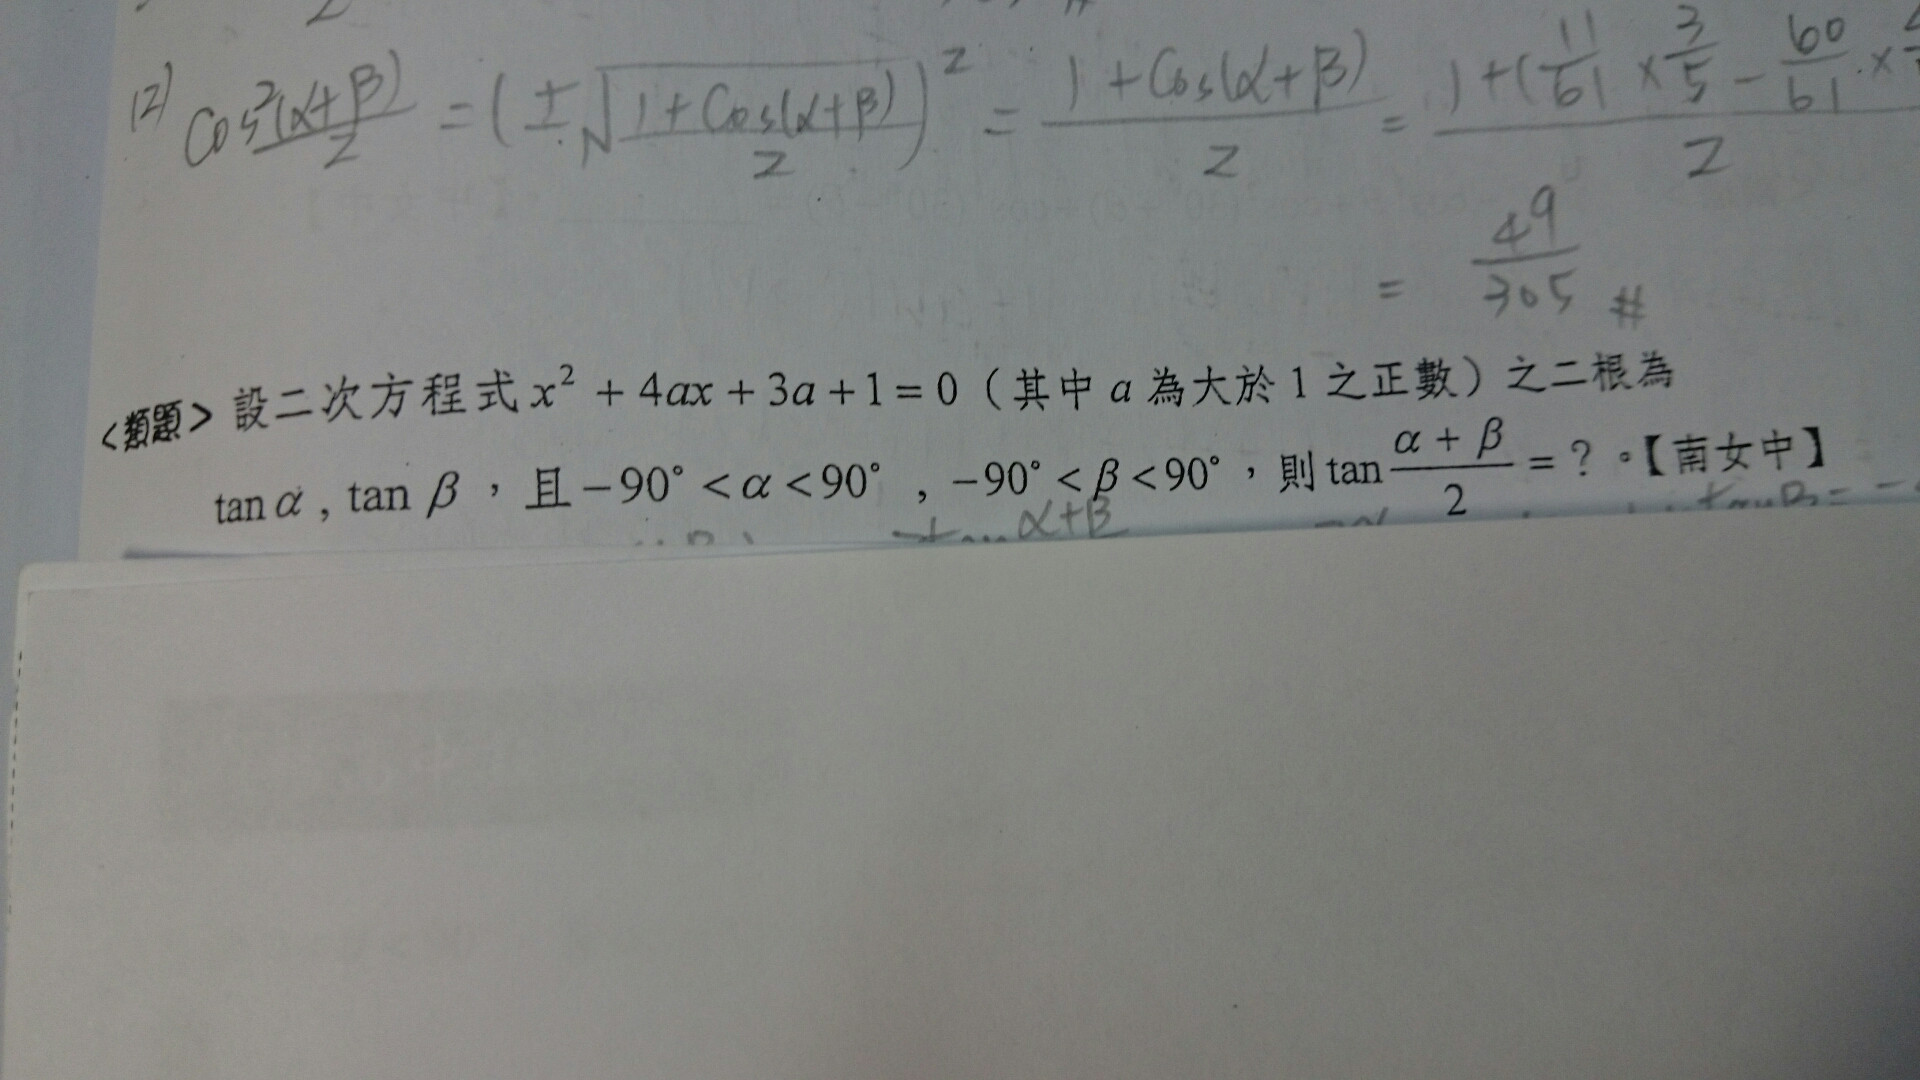 (2) cos²(α+β)/2 = (±√(1+Cos(α+β)/2))² = 1+Cos(α+β)/2 = 1+(11/61×3/5-60/61×
= 49/305 #
<類題> 設二次方程式 x² + 4ax + 3a + 1 = 0（其中 a 為大於 1 之正數）之二根為
tan α , tan β ，且 −90° < α < 90° , −90° < β < 90° ，則 tan (α + β)/2 = ？。【南女中】
α+β